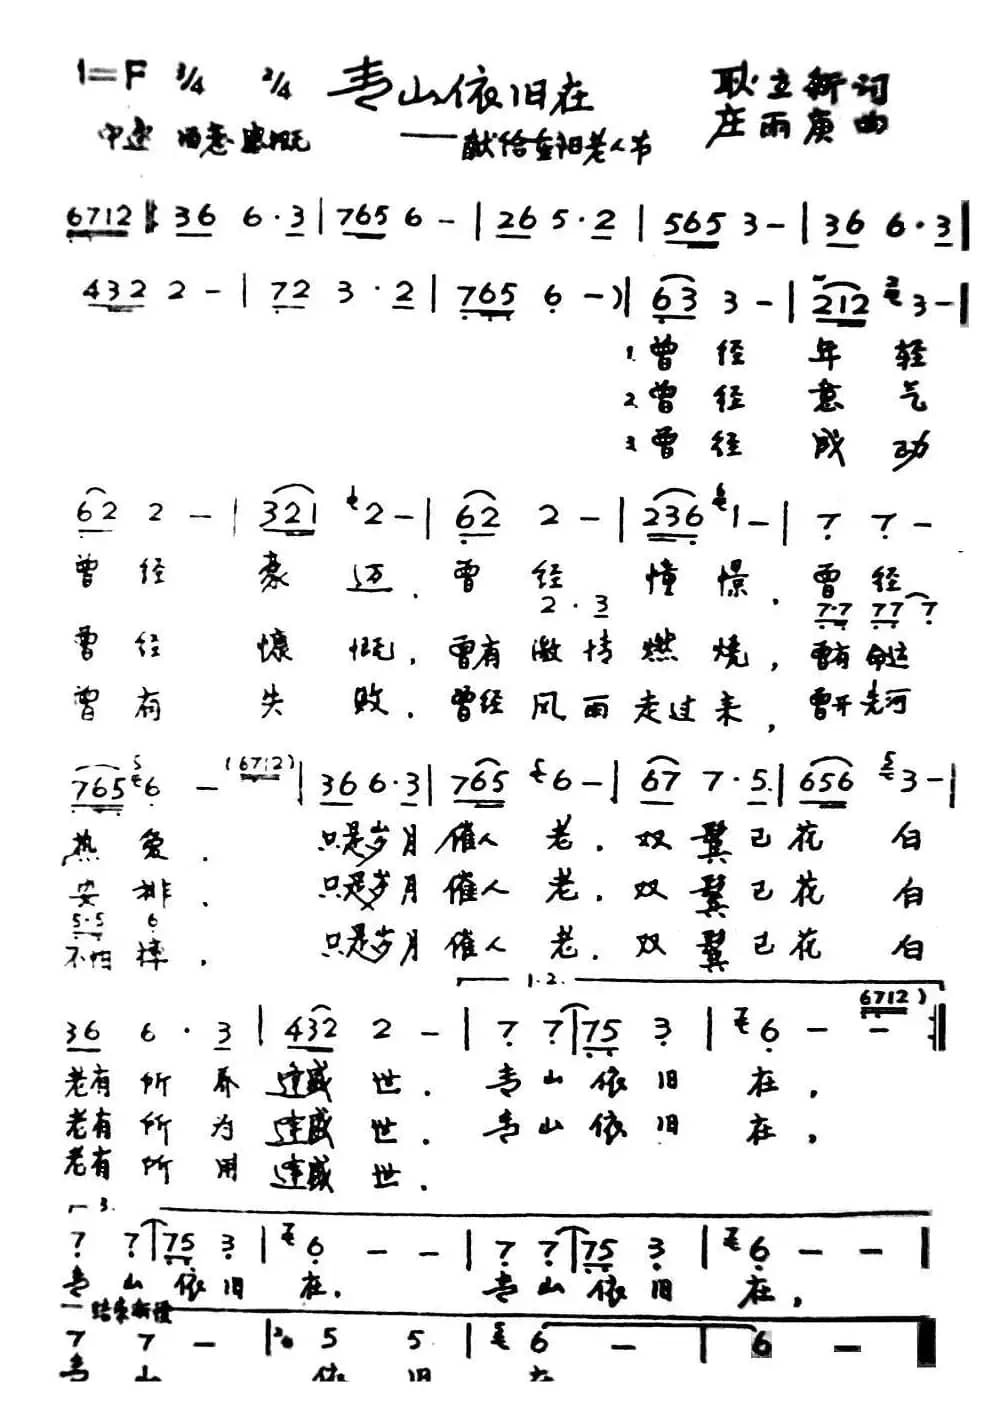 1=F 3/4 2/4 青山依旧在 耿立新词
中速 感慨 ——献给重阳老人节 庄雨庚曲
6712 ‖: 36 6·3 | 765 6 - | 26 5·2 | 565 3 - | 36 6·3 |
432 2 - | 72 3·2 | 765 6 - ) | 63 3 - | 212 3 - |
1.曾经年轻
2.曾经意气
3.曾经成功
62 2 - | 321 2 - | 62 2 - | 236 1 - | 7 7 -
曾经豪迈,曾经憧憬,曾经
2·3 7·7 77 7
曾经慷慨,曾有激情燃烧,曾有命运
曾有失败,曾经风雨走过来,曾开先河
765 5 6 - (6712) | 36 6·3 | 765 5 6 - | 67 7·5 | 656 5 3 - |
热爱.只是岁月催人老.双鬓已花白
安排.只是岁月催人老.双鬓已花白
5·5 6
不怕摔.只是岁月催人老.双鬓已花白
1.2.
6712)
36 6·3 | 432 2 - | 7 7 75 3 | 6 - - :‖
老有所养逢盛世.青山依旧在,
老有所为逢盛世.青山依旧在,
老有所用逢盛世.
3.
7 7 75 3 | 6 - - | 7 7 75 3 | 6 - - |
青山依旧在.青山依旧在,
结束
7 7 - | 5 5 | 6 - | 6 - ‖
青山依旧在